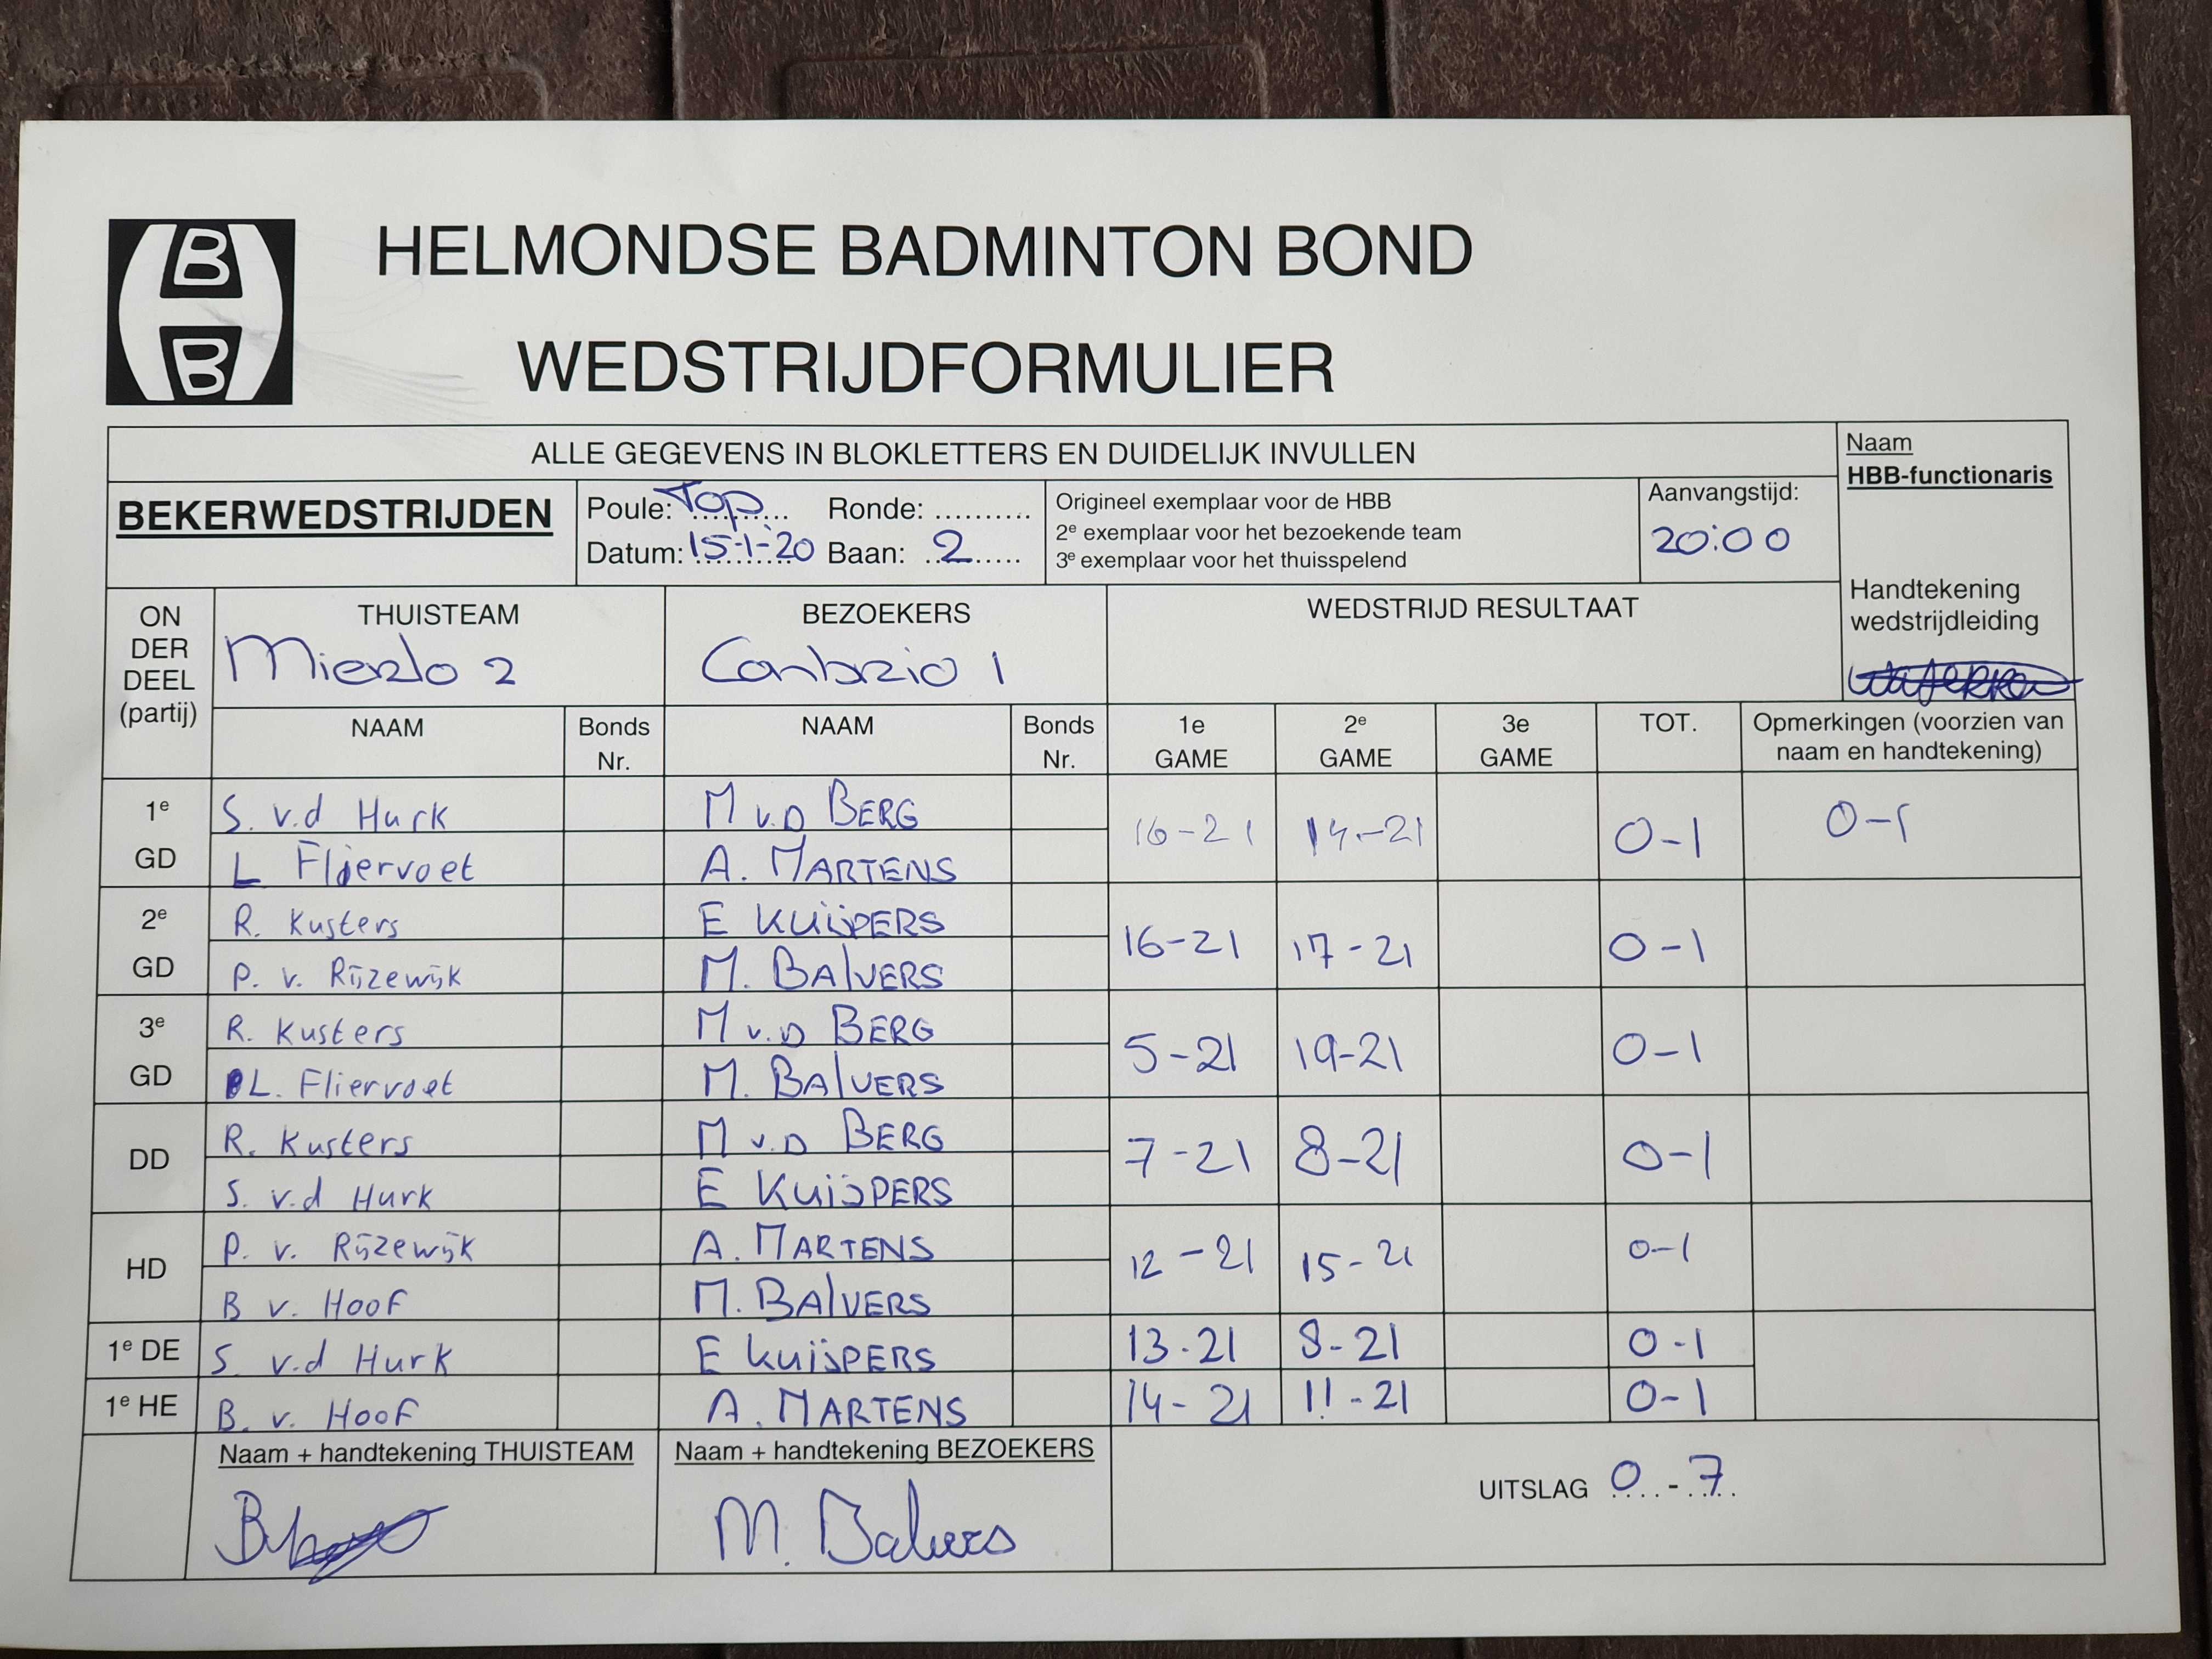 B
B
HELMONDSE BADMINTON BOND
WEDSTRIJDFORMULIER
ALLE GEGEVENS IN BLOKLETTERS EN DUIDELIJK INVULLEN
Naam
HBB-functionaris
BEKERWEDSTRIJDEN
Poule: Top Ronde: ..........
Datum: 15-1-20 Baan: 2
Origineel exemplaar voor de HBB
2e exemplaar voor het bezoekende team
3e exemplaar voor het thuisspelend
Aanvangstijd:
20:00
Handtekening
wedstrijdleiding
ON
DER
DEEL
(partij)
THUISTEAM BEZOEKERS WEDSTRIJD RESULTAAT
Mierlo 2 Conbrio 1
NAAM Bonds Nr. NAAM Bonds Nr. 1e GAME 2e GAME 3e GAME TOT. Opmerkingen (voorzien van naam en handtekening)
1e GD S. v.d Hurk M v.D BERG 16-21 14-21 0-1 0-1
L Fliervoet A. MARTENS
2e GD R. Kusters E KUijPERS 16-21 17-21 0-1
P. v. Rijzewijk M. BALVERS
3e GD R. Kusters M v.D BERG 5-21 19-21 0-1
L. Fliervoet M. BALVERS
DD R. Kusters M v.D BERG 7-21 8-21 0-1
S. v.d Hurk E KuijPERS
HD P. v. Rijzewijk A. MARTENS 12-21 15-21 0-1
B v. Hoof M. BALVERS
1e DE S. v.d Hurk E kuijPERS 13-21 8-21 0-1
1e HE B. v. Hoof A. MARTENS 14-21 11-21 0-1
Naam + handtekening THUISTEAM Naam + handtekening BEZOEKERS
UITSLAG 0 - 7
M. Balvers